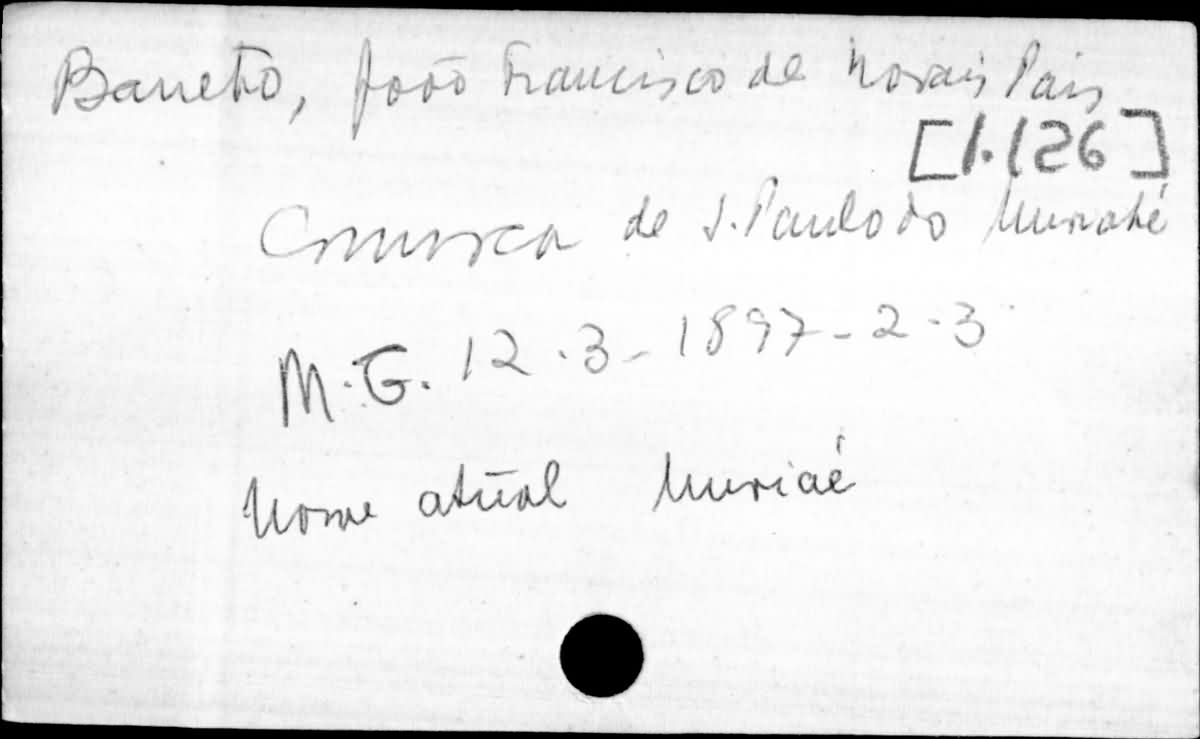 Barreto, João Francisco de Morais Pais
[1.126]
Comarca de S. Paulo do Muriahé
M.G. 12.3-1897-2.3
Nome atual Muriaé